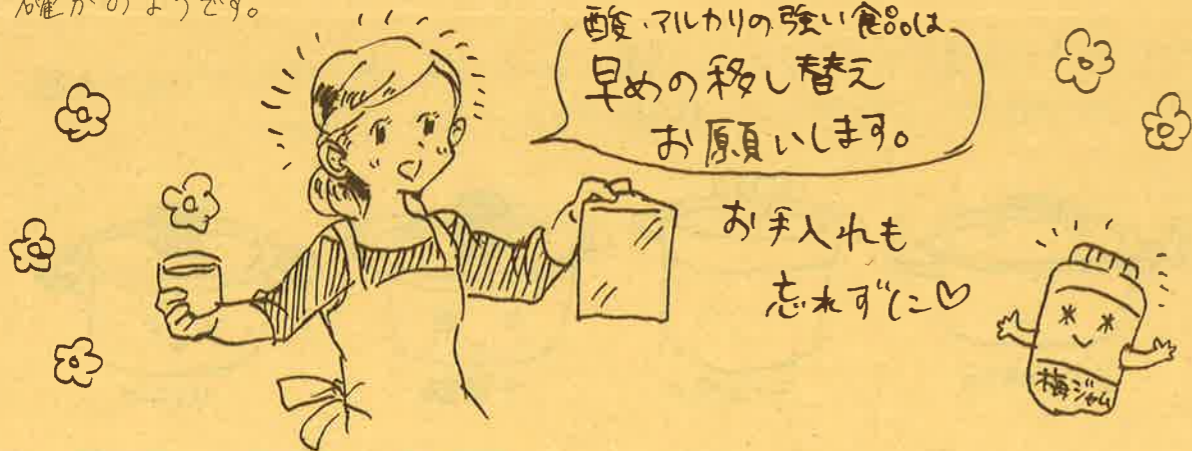 確かのようです。
酸・アルカリの強い食品は
早めの移し替え
お願いします。
お手入れも
忘れずに♡
梅ジャム